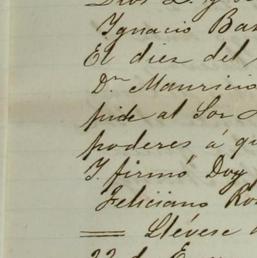 Ignacio Bas
El diez del
Dn Mauricio
pide al Sor
poderes á qu
Y. firmó Doy
Feliciano Ro
Llévese a
22 de En